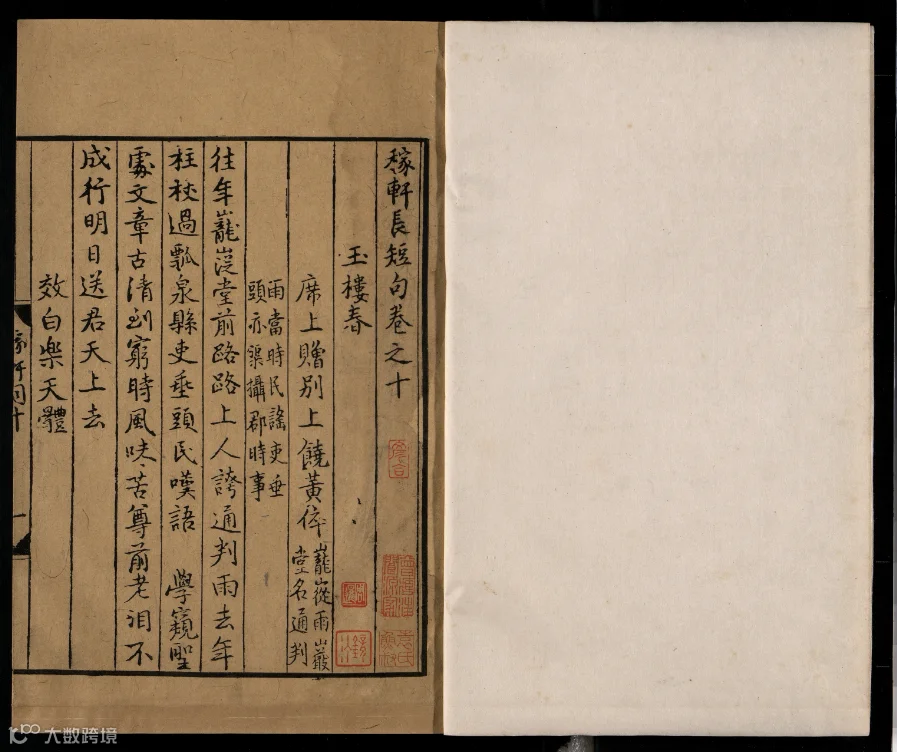 稼軒長短句卷之十
玉樓春
席上贈別上饒黃倅
巃嵸雨巖
堂名通判
雨當時民謠吏垂
頭亦渠攝郡時事
往年巃嵸堂前路路上人誇通判雨去年
拄杖過瓢泉縣吏垂頭民嘆語 學窺聖
處文章古清到窮時風味苦尊前老泪不
成行明日送君天上去
效白樂天體
大数跨境